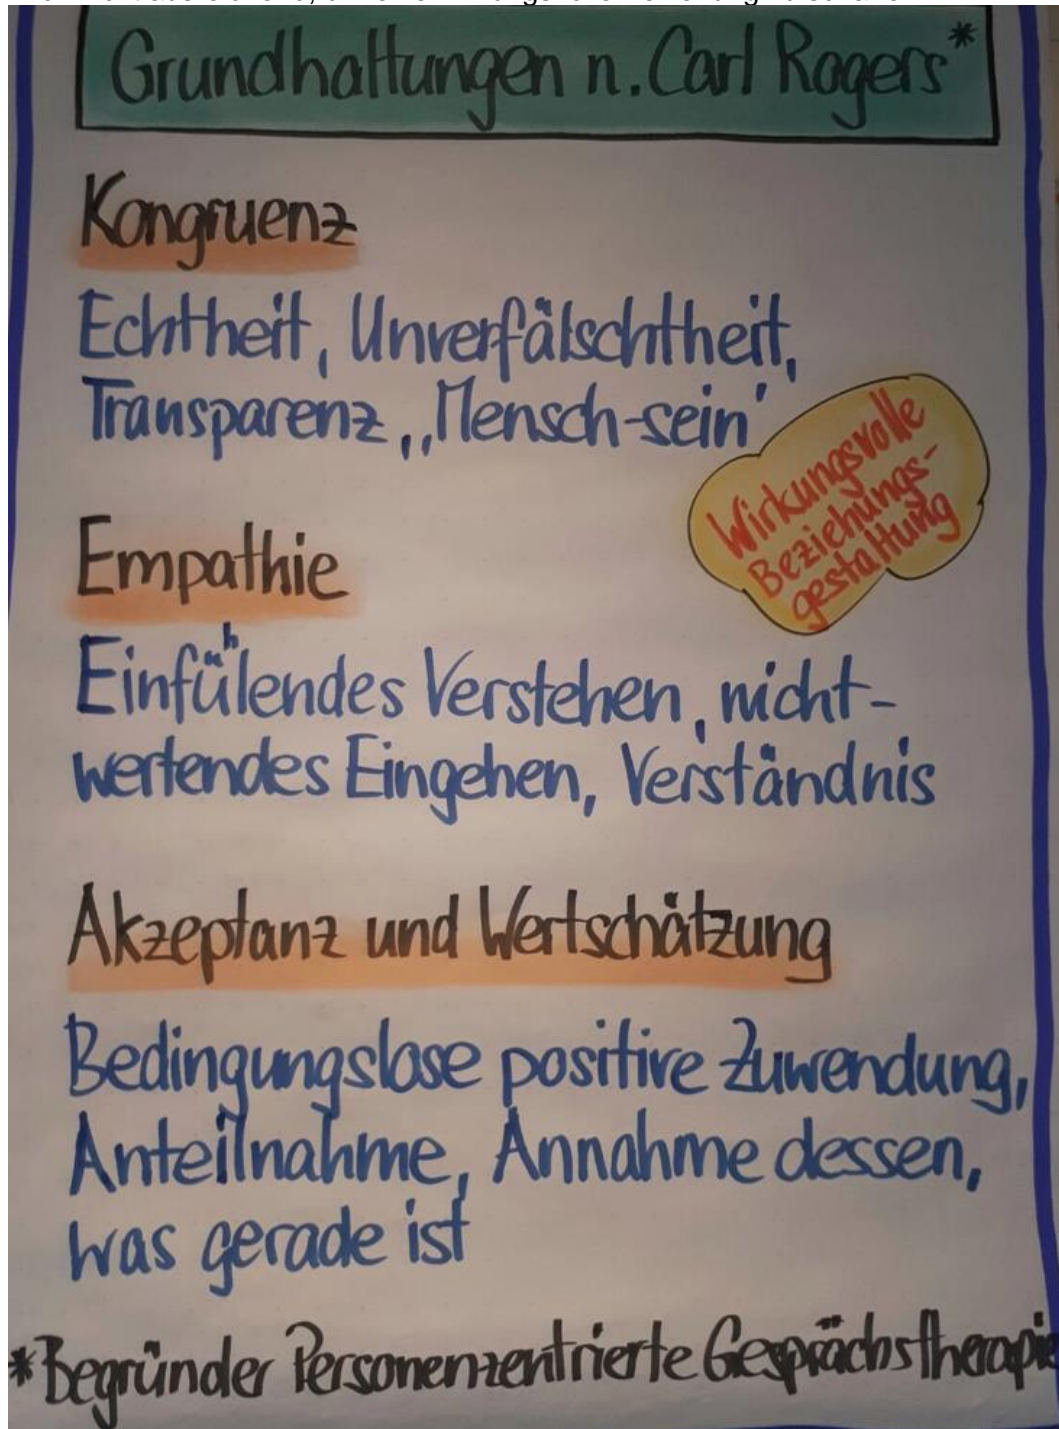 Grundhaltungen n. Carl Rogers*
Kongruenz
Echtheit, Unverfälschtheit,
Transparenz,„Mensch-sein'
Wirkungsvolle
Beziehungs-
gestaltung
Empathie
Einfühlendes Verstehen, nicht-
wertendes Eingehen, Verständnis
Akzeptanz und Wertschätzung
Bedingungslose positive Zuwendung,
Anteilnahme, Annahme dessen,
was gerade ist
*Begründer Personenzentrierte Gesprächstherapie